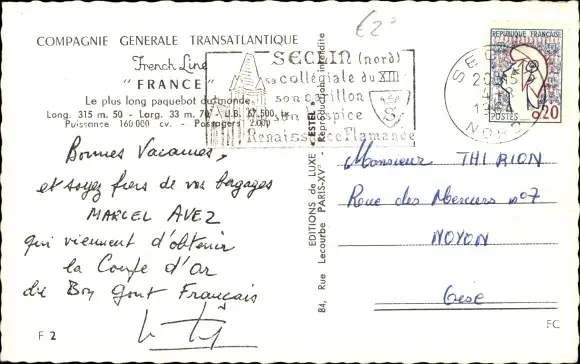 €2
COMPAGNIE GENERALE TRANSATLANTIQUE
French Line
" FRANCE "
Le plus long paquebot du monde
Long. 315 m. 50 - Larg. 33 m. 70 - J.B. 67.500 tx
Puissance 160.000 cv. - Passagers 2.000
SECLIN (nord)
sa collégiale du XIII
son carillon
son hospice
Renaissance Flamande
S
SECLIN
NORD
REPUBLIQUE FRANÇAISE
POSTES
0,20
Bonnes Vacances,
et soyez fiers de vos bagages
MARCEL AVEZ
qui viennent d'obtenir
la Coupe d'Or
du Bon Gout Français
F 2
EDITIONS de LUXE "ESTEL"
Reproduction interdite
84, Rue Lecourbe PARIS-XV°
Monsieur THIRION
Rue des Merciers n°7
NOYON
Oise
FC